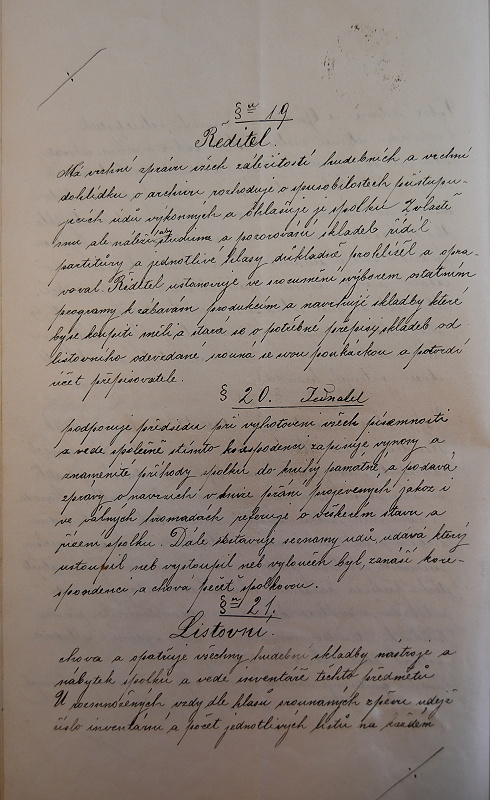 § u 19
Ředitel.
Má vrchní zprávu všech záležitostí hudebních a vrchní
dohlídku o archivu rozhoduje o spusobilostech přistupu-
jících údů výkonných a ohlašuje je spolku Zvláště
mu ale náleží by studium a pozorování skladeb řídil
partitury a jednotlivé hlasy důkladně prohlížel a opra-
voval. Ředitel ustanovuje ve srozumění výborem ostatním
programy k zábavám produkcím a navrhuje skladby které
by se koupiti měli a stara se o potřebné přepisy skladeb od
listovního odevzdané, srovná se svou poukázkou a potvrdí
účet přepisovatele.
§ 20. Jednatel
podporuje předsedu při vyhotovení všech písemností
a vede společně s tímto korespondenci zapisuje výnosy a
znamenité příhody spolku do knihy pamětné a podává
zprávy o návrzích v knize přání projevených jakož i
ve valných hromadách referuje o veškerém stavu a
řízení spolku. Dále sestavuje seznamy údů, udává který
vstoupil neb vystoupil neb vyloučen byl, zanáší kore-
spondenci a chová pečeť spolkovou.
§ u 21.
Listovní.
chova a opatřuje všechny hudební skladby nástroje a
nábytek spolku a vede inventáře těchto předmětů
U rozmnožených vzdy dle hlasů srovnaných zpěvu udejě
číslo inventární a počet jednotlivých listů na každém